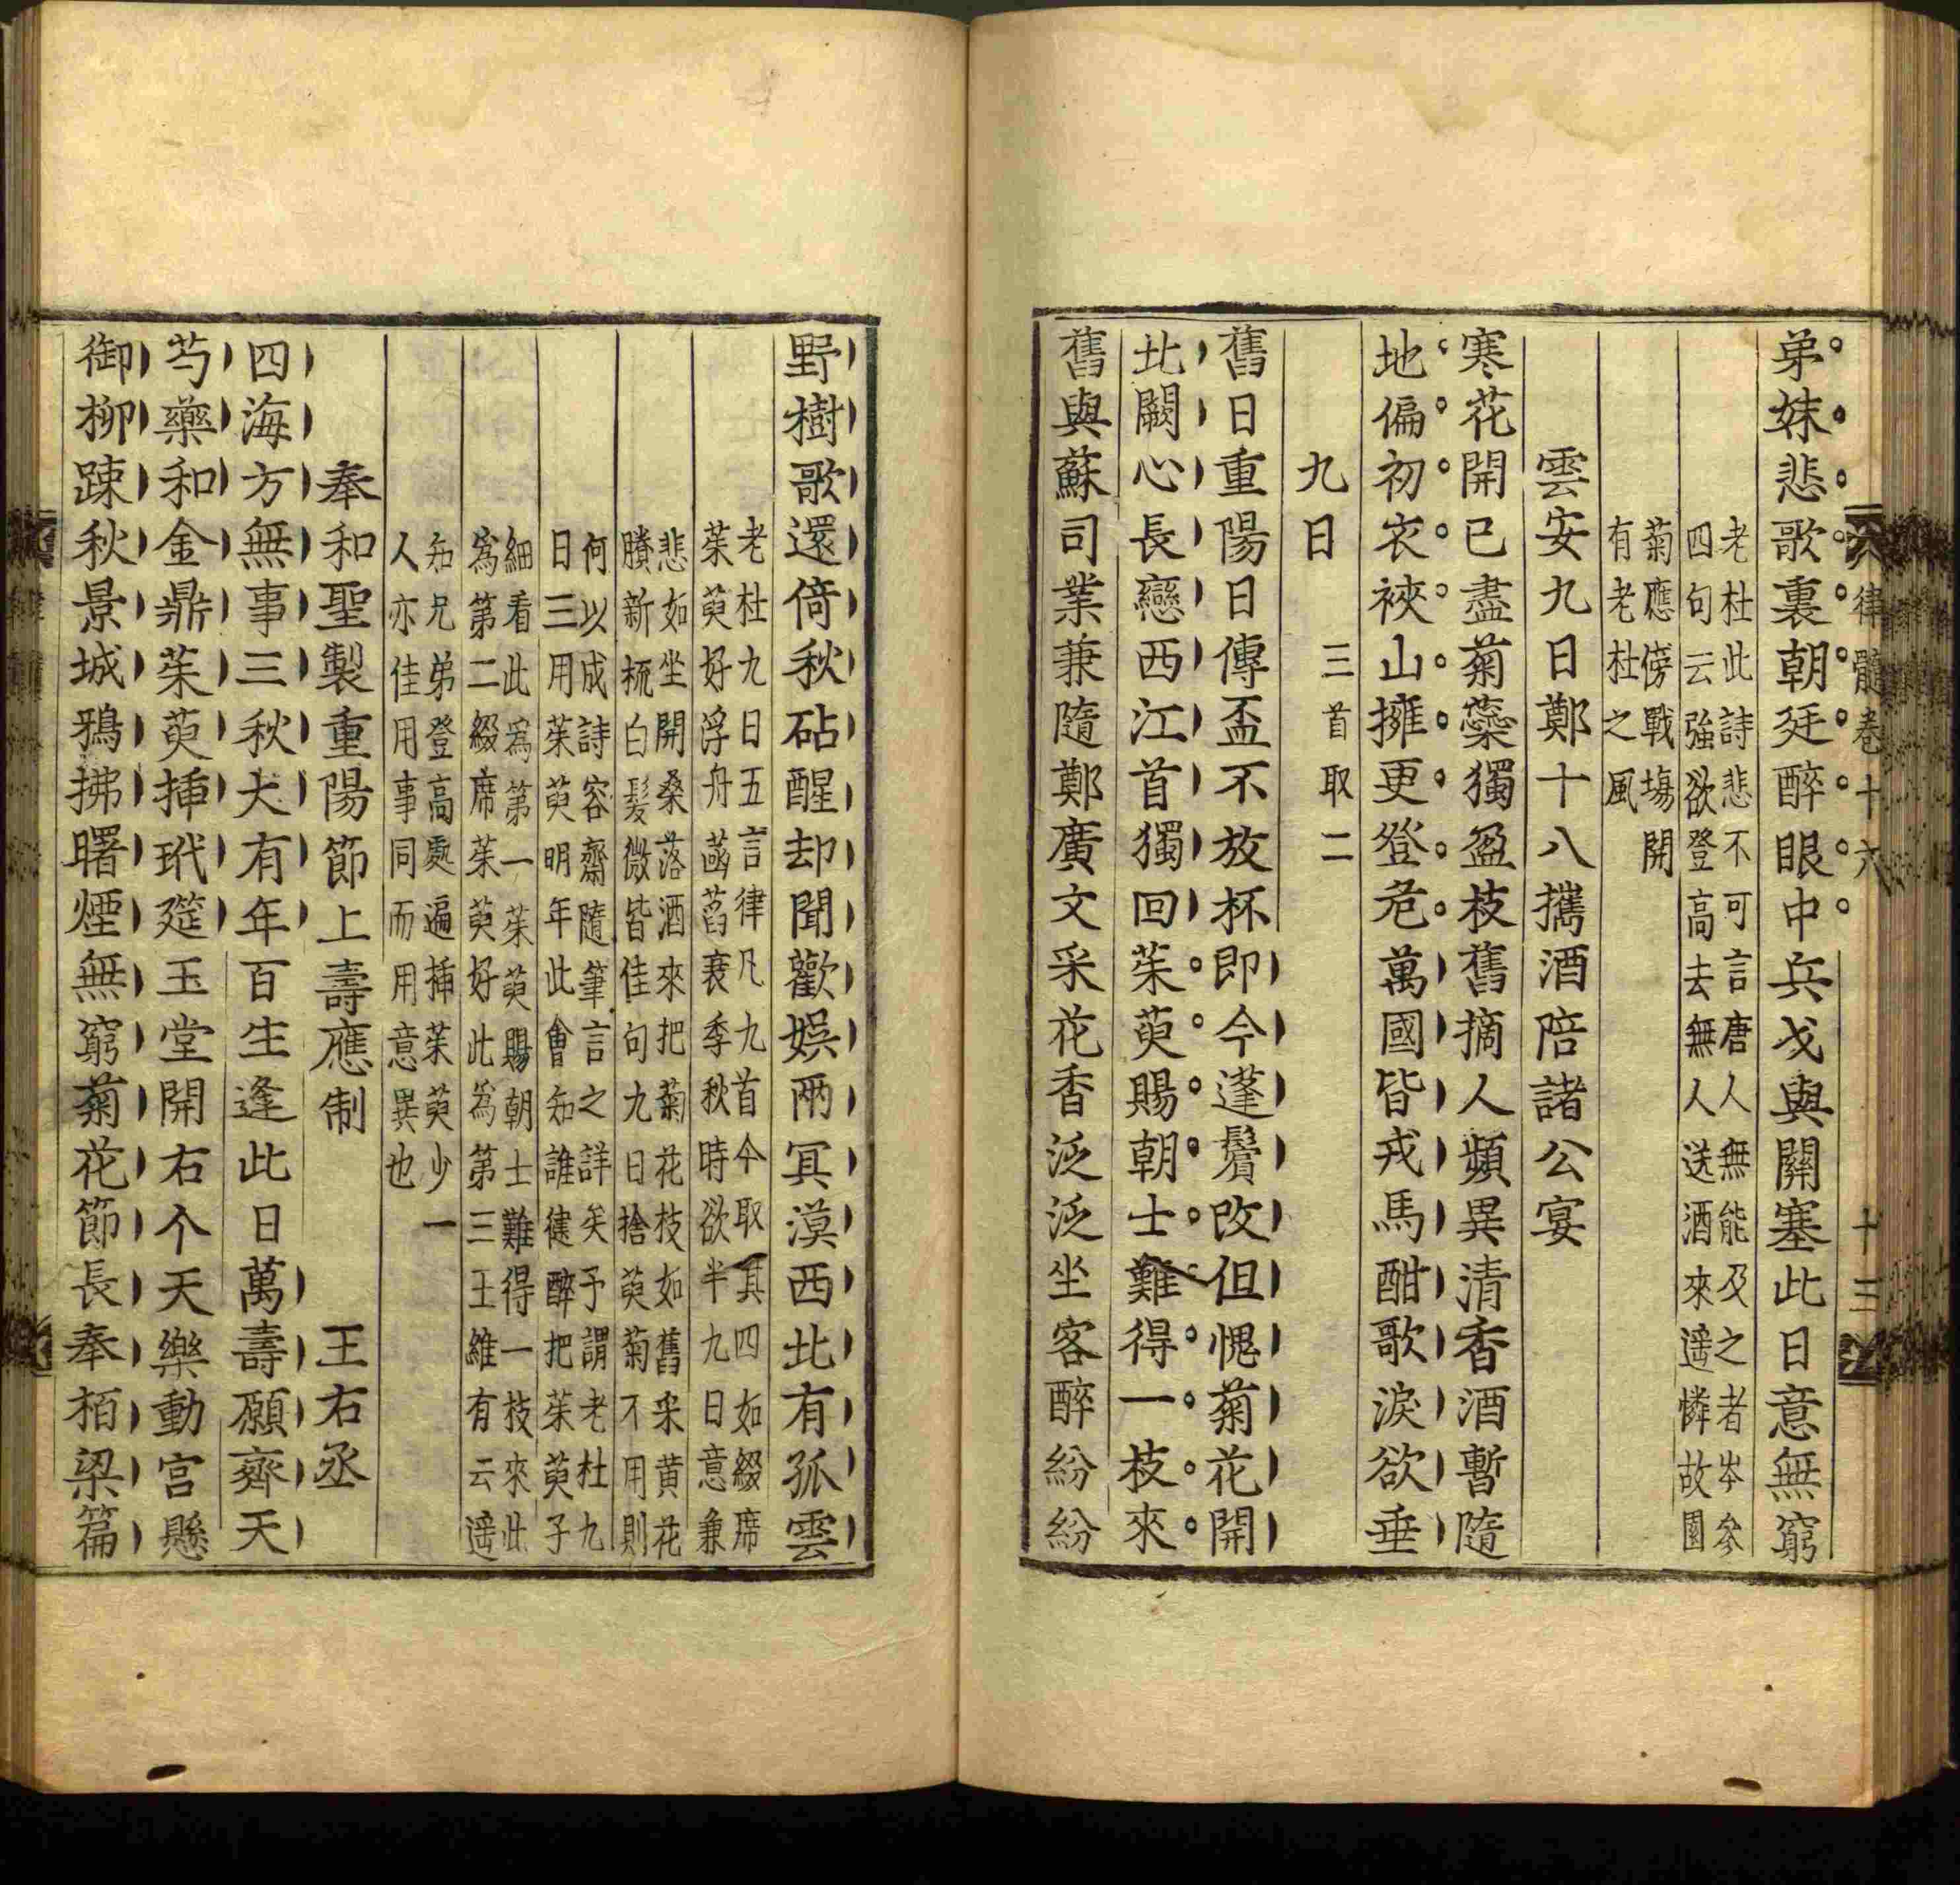 弟妹悲歌裏朝廷醉眼中兵戈與關塞此日意無窮
老杜此詩悲不可言唐人無能及之者岑參
四句云強欲登高去無人送酒來遥憐故園
菊應傍戰場開
有老杜之風
雲安九日鄭十八攜酒陪諸公宴
寒花開已盡菊蘂獨盈枝舊摘人頻異清香酒暫隨
地偏初衣裌山擁更登危萬國皆戎馬酣歌淚欲垂
九日 三首取二
舊日重陽日傳盃不放杯即今蓬鬢改但愧菊花開
北闕心長戀西江首獨回茱萸賜朝士難得一枝來
舊與蘇司業兼隨鄭廣文采花香泛泛坐客醉紛紛
律髓卷十六 十三
野樹歌還倚秋砧醒却聞歡娛兩冥漠西北有孤雲
老杜九日五言律凡九首今取其四如綴席
茱萸好浮舟菡萏衰季秋時欲半九日意兼
悲如坐開桑落酒來把菊花枝如舊采黄花
賸新梳白髮微皆佳句九日捨萸菊不用則
何以成詩容齋隨筆言之詳矣予謂老杜九
日三用茱萸明年此會知誰健醉把茱萸子
細看此爲第一茱萸賜朝士難得一枝來此
爲第二綴席茱萸好此爲第三王維有云遥
知兄弟登高處遍揷茱萸少一
人亦佳用事同而用意異也
奉和聖製重陽節上壽應制 王右丞
四海方無事三秋大有年百生逢此日萬壽願齊天
芍藥和金鼎茱萸揷玳筵玉堂開右个天樂動宮懸
御柳踈秋景城鴉拂曙煙無窮菊花節長奉栢梁篇